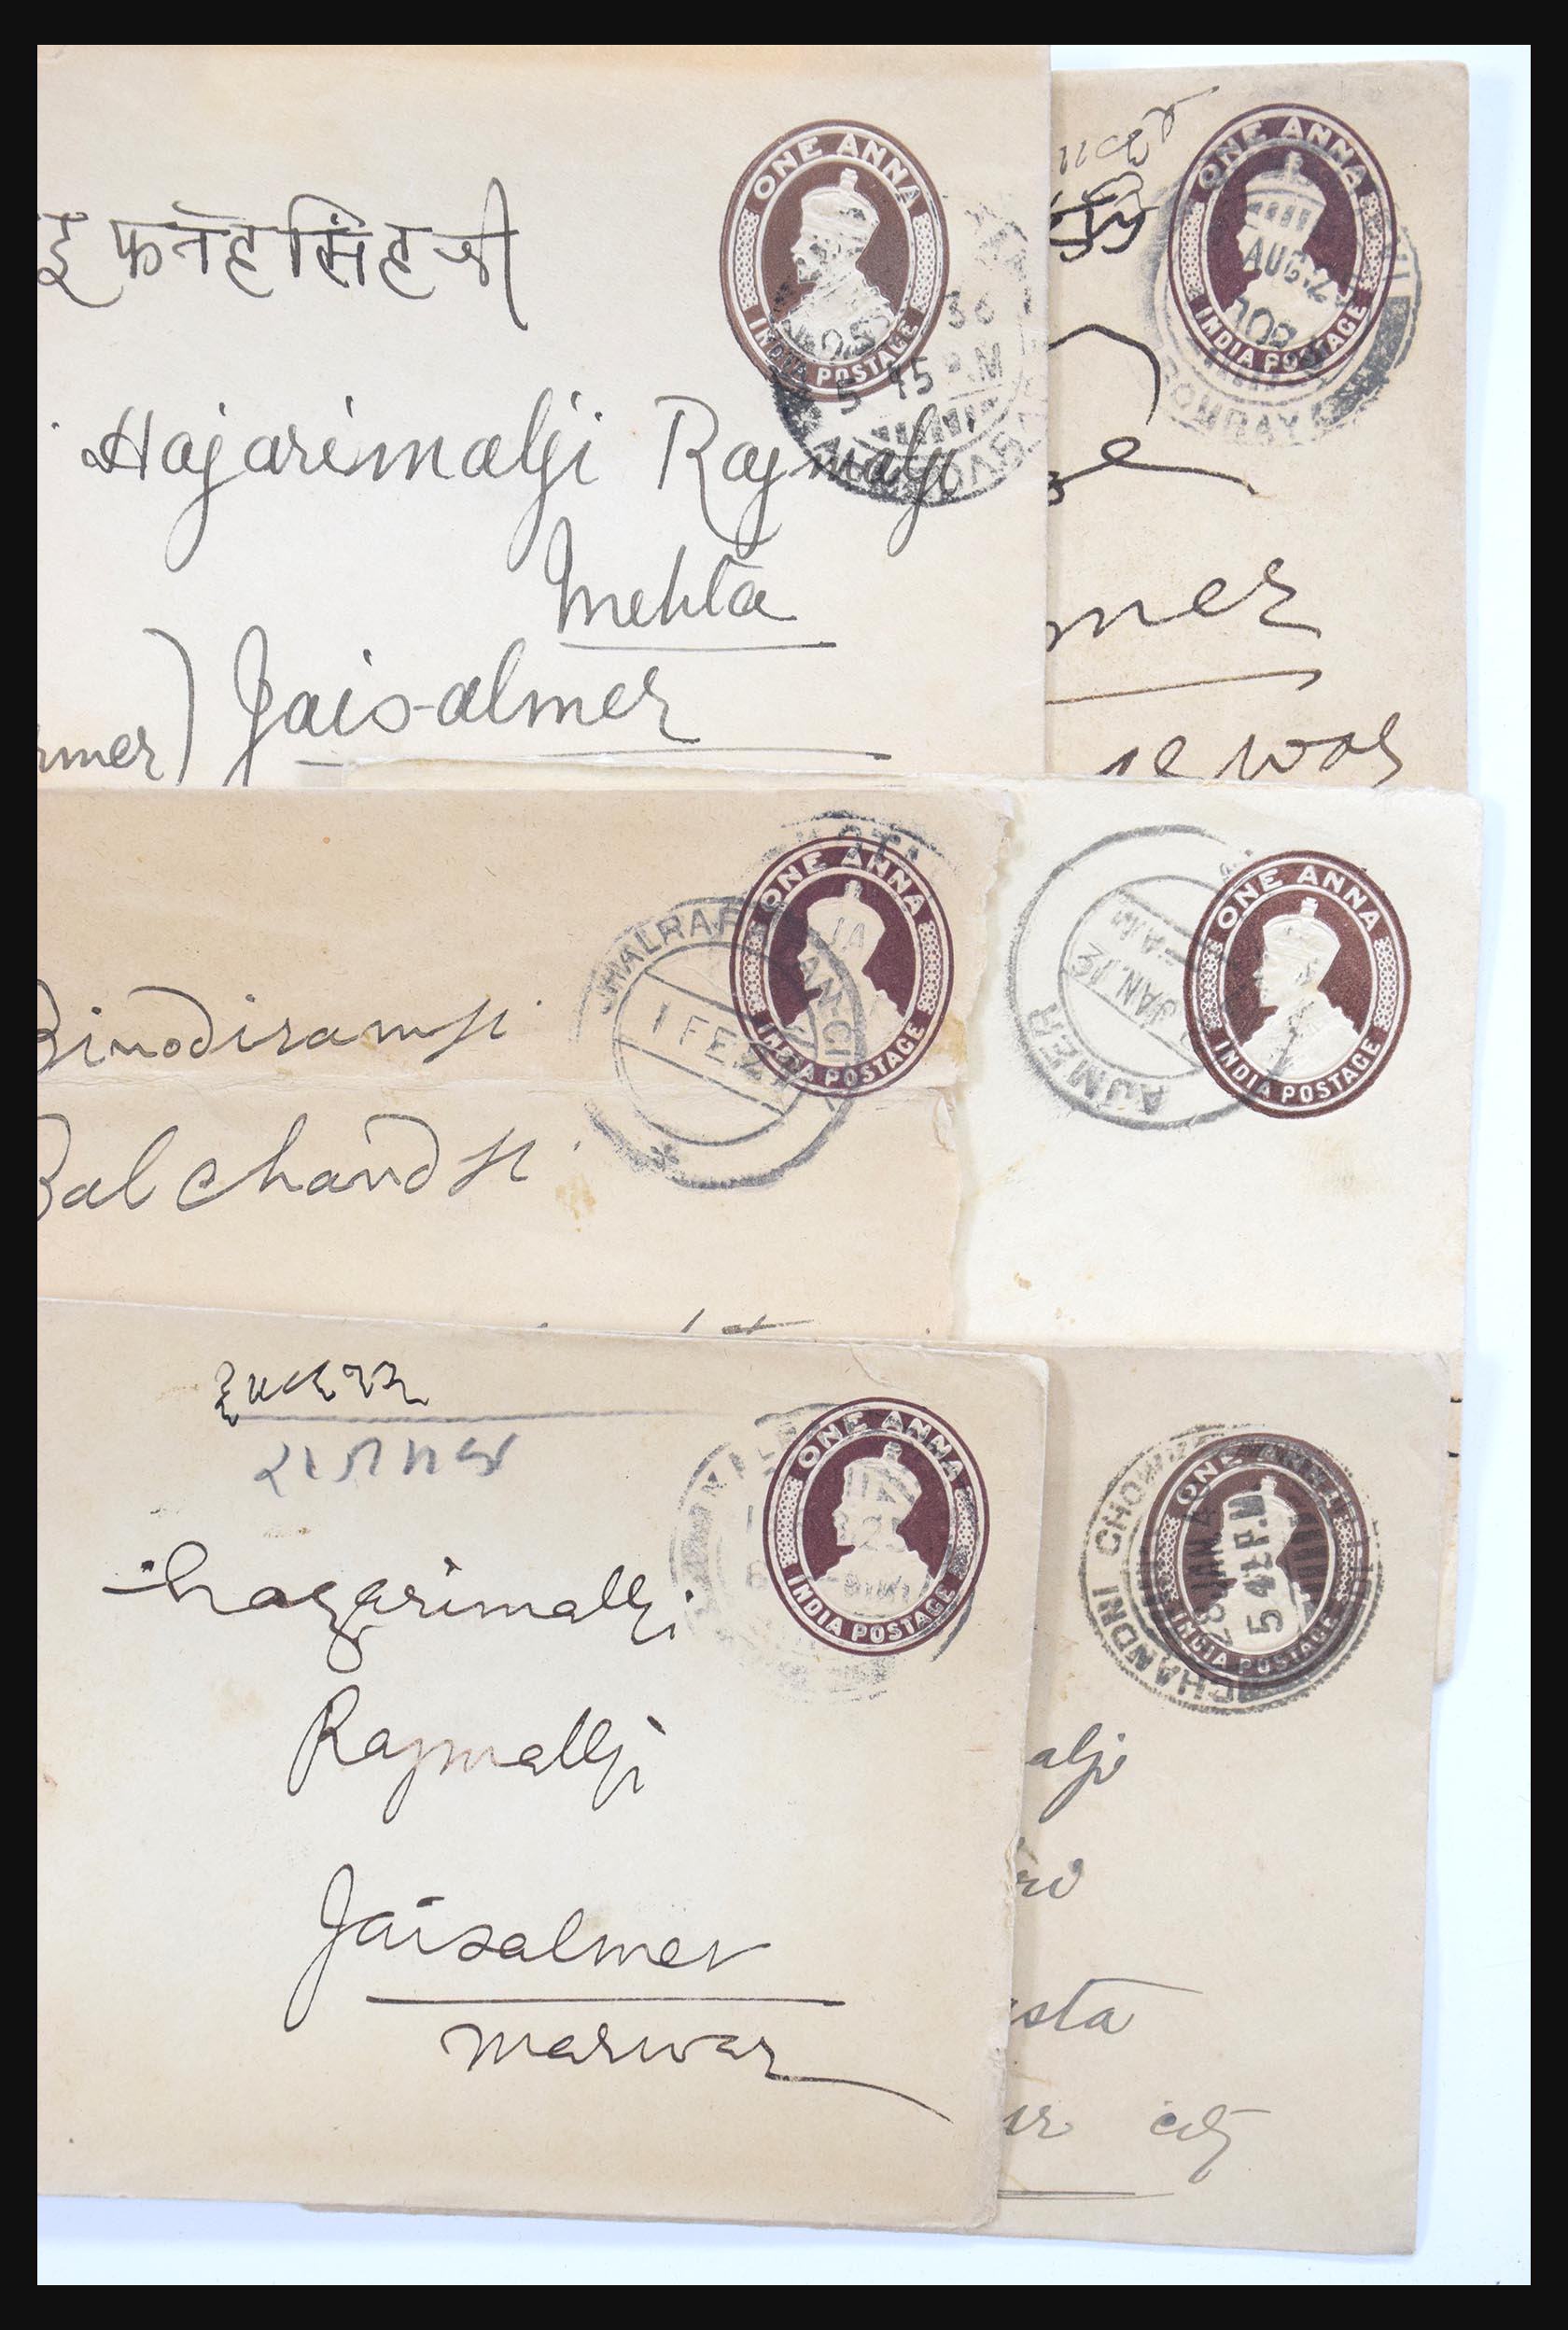 ONE ANNA
INDIA POSTAGE
36
5 45 PM
इ फतेहसिंहजी
Hajarimalji Rajmalji
Mehta
rmer) Jaisalmer
ONE ANNA
INDIA POSTAGE
AUG 2
BOMBAY
mer
ONE ANNA
INDIA POSTAGE
JHALRAP
1 FE
Binodiramji
Balchandji
ONE ANNA
INDIA POSTAGE
AJMER
JAN. 16
A.M
ONE ANNA
INDIA POSTAGE
hazarimallji
Rajmallji
Jaisalmer
marwar
ONE ANNA
INDIA POSTAGE
CHANDRI CHOW
28 JAN
5 4 P.M.
alji
sta
city